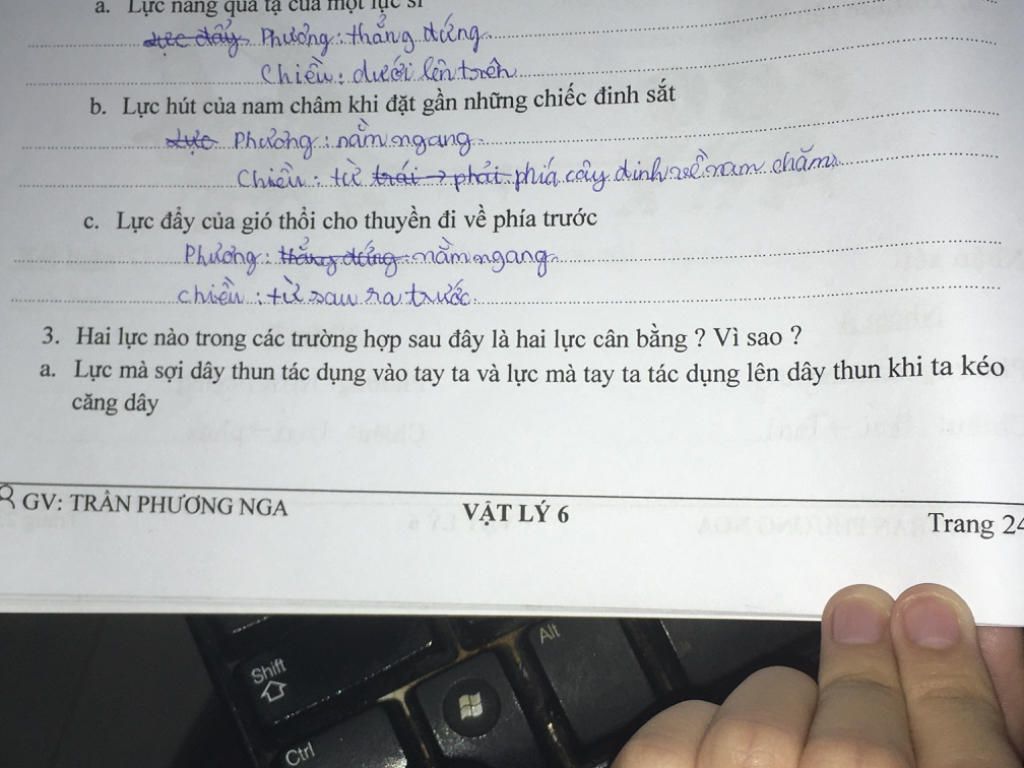 a. Lực nâng quả tạ của một lực sĩ
lực đẩy Phương: thẳng đứng
Chiều: dưới lên trên
b. Lực hút của nam châm khi đặt gần những chiếc đinh sắt
Lực Phương: nằm ngang
Chiều: từ trái → phải phía cây đinh về nam châm
c. Lực đẩy của gió thổi cho thuyền đi về phía trước
Phương: thẳng đứng nằm ngang
chiều: từ sau ra trước
3. Hai lực nào trong các trường hợp sau đây là hai lực cân bằng ? Vì sao ?
a. Lực mà sợi dây thun tác dụng vào tay ta và lực mà tay ta tác dụng lên dây thun khi ta kéo
căng dây
GV: TRẦN PHƯƠNG NGA VẬT LÝ 6 Trang 24
Shift
Alt
Ctrl